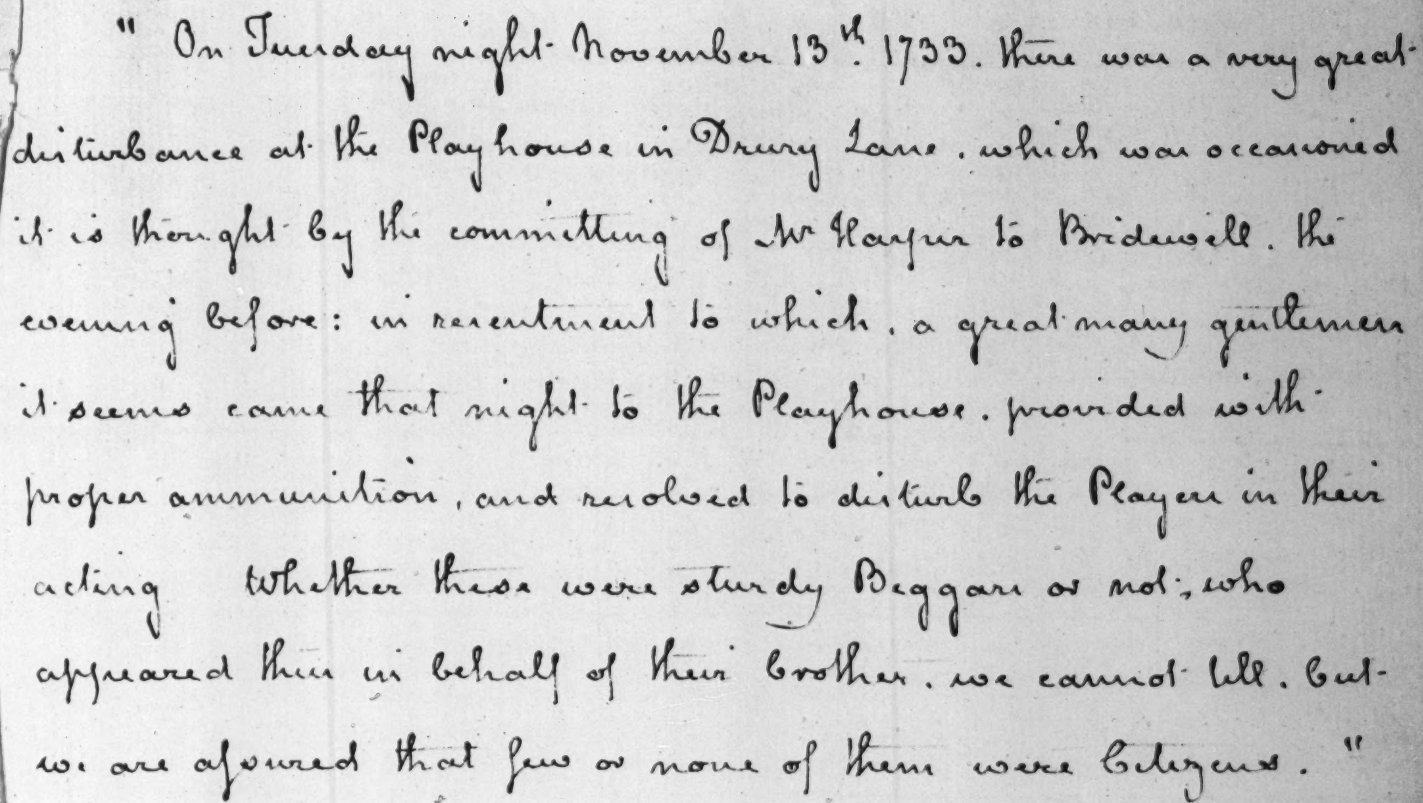 " On Tuesday night November 13th. 1733. there was a very great
disturbance at the Playhouse in Drury Lane. which was occasioned
it is thought by the committing of Mr Harper to Bridewell. the
evening before: in resentment to which, a great many gentlemen
it seems came that night to the Playhouse. provided with
proper ammunition, and resolved to disturb the Players in their
acting Whether these were sturdy Beggars or not; who
appeared thus in behalf of their brother. we cannot tell. but
we are assured that few or none of them were Citizens. "